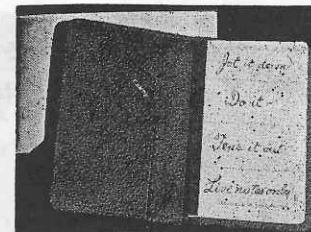 Jot it down
Do it
Tear it out
Live notes only